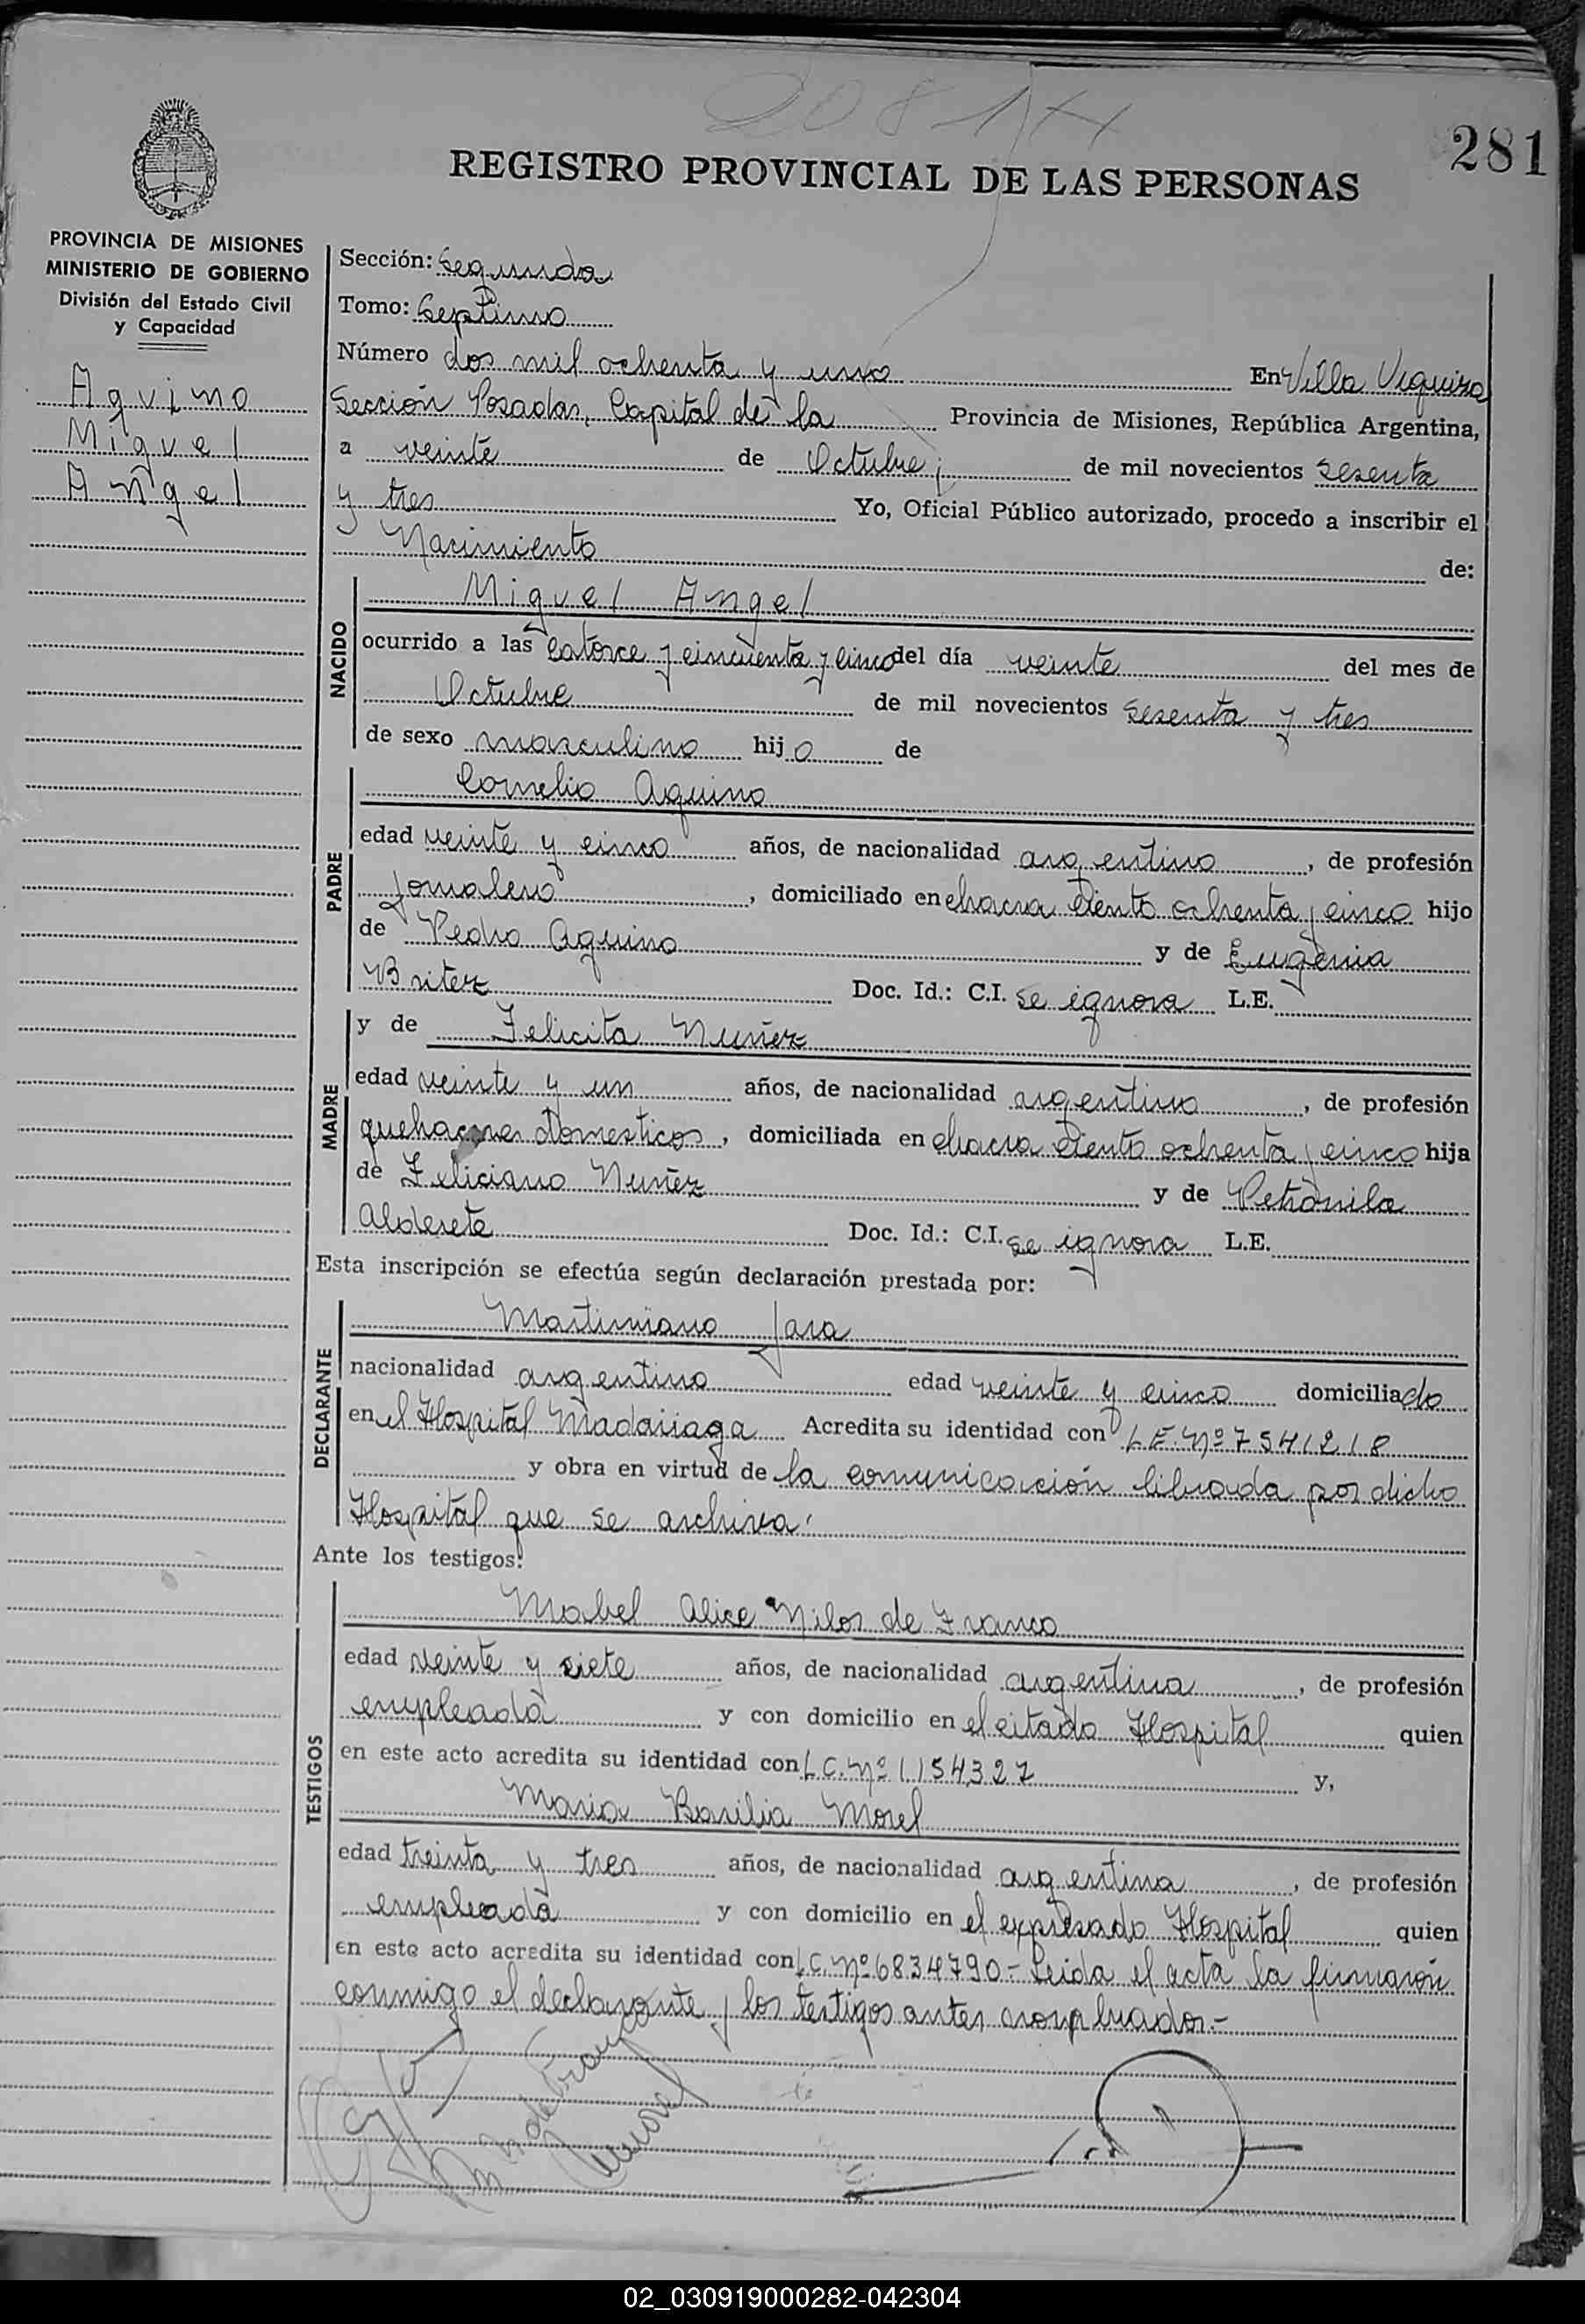 281
REGISTRO PROVINCIAL DE LAS PERSONAS
PROVINCIA DE MISIONES
MINISTERIO DE GOBIERNO
División del Estado Civil
y Capacidad
Aquino
Miguel
Angel
Sección: Segunda
Tomo: Septimo
Número dos mil ochenta y uno En Villa Urquiza
Sección Posadas, Capital de la Provincia de Misiones, República Argentina,
a veinte de Octubre de mil novecientos sesenta
y tres Yo, Oficial Público autorizado, procedo a inscribir el
Nacimiento de:
NACIDO
Miguel Angel
ocurrido a las Catorce y cincuenta y cinco del día veinte del mes de
Octubre de mil novecientos sesenta y tres
de sexo masculino hijo de
PADRE
Cornelio Aquino
edad veinte y cinco años, de nacionalidad argentino, de profesión
Jornalero, domiciliado en chacra ciento ochenta y cinco hijo
de Pedro Aquino y de Eugenia
Britez Doc. Id.: C.I. se ignora L.E.
MADRE
y de Felicita Nuñez
edad veinte y un años, de nacionalidad argentina, de profesión
quehaceres domesticos, domiciliada en chacra ciento ochenta y cinco hija
de Feliciano Nuñez y de Petronila
Alderete Doc. Id.: C.I. se ignora L.E.
Esta inscripción se efectúa según declaración prestada por:
DECLARANTE
Martimiano Jara
nacionalidad argentino edad veinte y cinco domiciliado
en el Hospital Madariaga Acredita su identidad con L.E. Nº 7541218
y obra en virtud de la comunicación librada por dicho
Hospital que se archiva.
Ante los testigos:
TESTIGOS
Mabel Alice de Franco
edad veinte y siete años, de nacionalidad argentina, de profesión
empleada y con domicilio en el citado Hospital quien
en este acto acredita su identidad con L.C. Nº 1154327 y,
Maria Basilia Morel
edad treinta y tres años, de nacionalidad argentina, de profesión
empleada y con domicilio en el expresado Hospital quien
en este acto acredita su identidad con L.C. Nº 6834790.- Leida el acta la firmaron
conmigo el declarante y los testigos antes nombrados.-
02_030919000282-042304